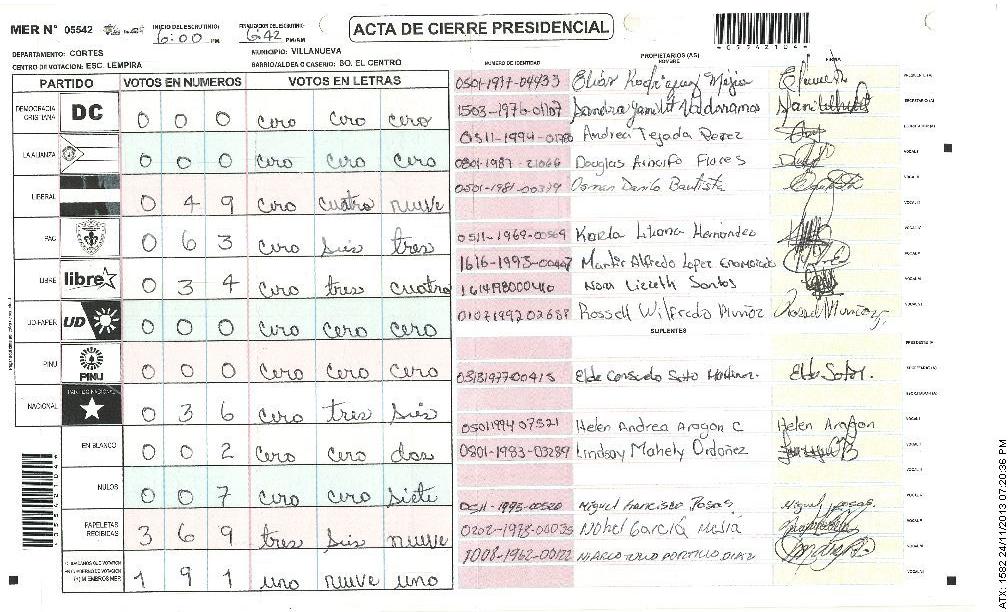 MER N° 05542
INICIO DEL ESCRUTINIO:
6:00 PM
FINALIZACION DEL ESCRUTINIO:
6:42 PM/AM
ACTA DE CIERRE PRESIDENCIAL
DEPARTAMENTO: CORTES
MUNICIPIO: VILLANUEVA
CENTRO DE VOTACION: ESC. LEMPIRA
BARRIO/ALDEA O CASERIO: BO. EL CENTRO
PARTIDO VOTOS EN NUMEROS VOTOS EN LETRAS
DEMOCRACIA CRISTIANA DC 0 0 0 cero cero cero
LA ALIANZA 0 0 0 cero cero cero
LIBERAL 0 4 9 cero cuatro nueve
PAC 0 6 3 cero seis tres
LIBRE libre 0 3 4 cero tres cuatro
UD-FAPER UD 0 0 0 cero cero cero
PINU PINU 0 0 0 cero cero cero
NACIONAL PARTIDO NACIONAL 0 3 6 cero tres seis
EN BLANCO 0 0 2 cero cero dos
NULOS 0 0 7 cero cero siete
PAPELETAS RECIBIDAS 3 6 9 tres seis nueve
1 9 1 uno nueve uno
NUMERO DE IDENTIDAD
PROPIETARIOS (AS)
NOMBRE
FIRMA
0501-1977-04433 Elias Rodriguez Mejia
1503-1976-01107 Sandra Yamileth Valderramos
0511-1994-01780 Andrea Tejada Perez
0801-1987-21066 Douglas Arnolfo Flores
0501-1981-00379 Osman Danilo Bautista
0511-1969-00569 Karla Liliana Hernandez
1616-1993-00447 Martir Alfredo Lopez Enamorado
1614198000410 Nora Lizeth Santos
0107199202688 Rossell Wilfredo Muñoz Rossel Muñoz
SUPLENTES
0313197700415 Elda Consuelo Soto Martinez. Elda Soto.
0501199407521 Helen Andrea Aragon C Helen Aragon
0801-1983-03289 Lindsay Mahely Ordoñez
0511-1995-00500 Miguel Francisco Rosas Miguel rosas.
0202-1973-00035 Nohel Garcia Mejia
1008-1962-00122 MARCO TULIO PORTILLO DIAZ
ATX: 1582 24/11/2013 07:20:36 PM